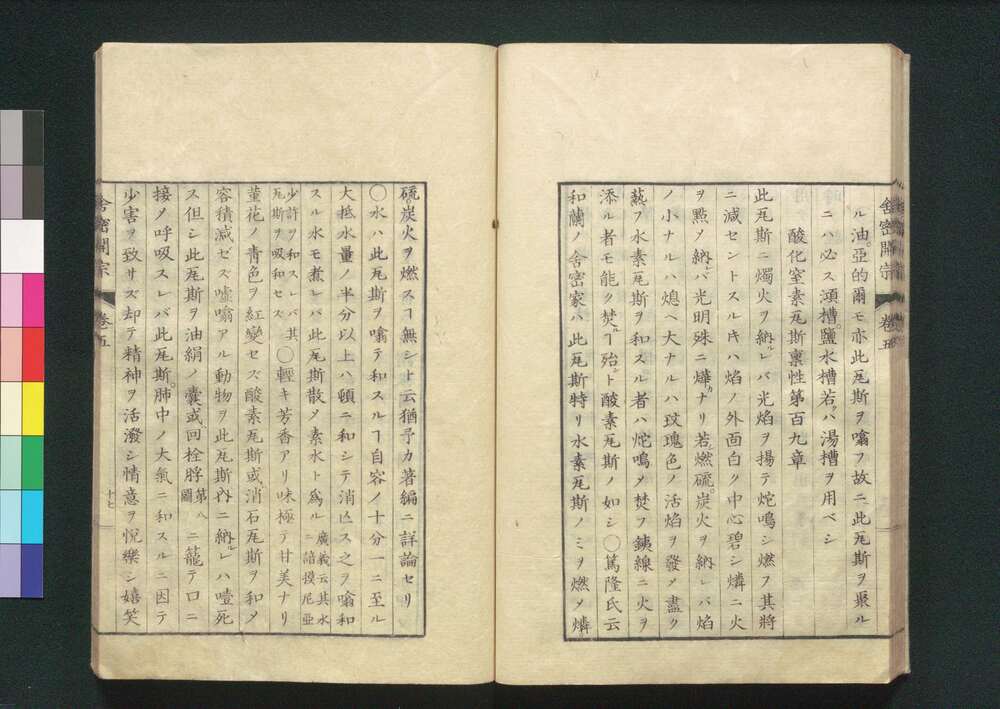 ル油。亞的爾モ亦此瓦斯ヲ噏フ故ニ此瓦斯ヲ聚ル
ニハ必ス澒槽鹽水槽若クハ湯槽ヲ用ベシ
酸化窒素瓦斯稟性第百九章
此瓦斯ニ燭火ヲ納ルレバ光焰ヲ揚テ炨鳴シ燃フ其將
ニ減セントスル片ハ焰ノ外面白ク中心碧シ燐ニ火
ヲ點ノ納レバ光明殊ニ燁カナリ若燃硫炭火ヲ納レバ焰
ノ小ナルハ熄ヘ大ナルハ玫瑰色ノ活焰ヲ發メ盡ク
爇フ水素瓦斯ヲ和スル者ハ炨鳴メ焚フ銕線ニ火ヲ
添ル者モ能ク焚ルヿ殆ント酸素瓦斯ノ如シ〇篤隆氏云
和蘭ノ舍密家ハ此瓦斯特リ水素瓦斯ノミヲ燃メ燐
舍密開宗
卷五
硫炭火ヲ燃スヿ無シト云猶予カ著編ニ詳論セリ
〇水ハ此瓦斯ヲ噏テ和スルヿ自容ノ十分一ニ至ル
大抵水量ノ半分以上ハ頓ニ和シテ消亾ス之ヲ噏和
スル水モ煮レバ此瓦斯散メ素水ト爲ル廣義云其水ニ諳摸尼亜
少許ヲ和スレバ其瓦斯ヲ吸和セス〇輕キ芳香アリ味極テ甘美ナリ
菫花ノ青色ヲ紅變セズ酸素瓦斯或消石瓦斯ヲ和メ
容積減ゼズ噓噏アル動物ヲ此瓦斯內ニ納ルレハ噎死
ス但シ此瓦斯ヲ油絹ノ囊或回栓脬第八圖ニ籠テ口ニ
接ノ呼吸スレバ此瓦斯。肺中ノ大氣ニ和スルニ因テ
少害ヲ致サズ却テ精神ヲ活潑シ情意ヲ悅樂シ嬉笑
舍密開宗
卷五
十七